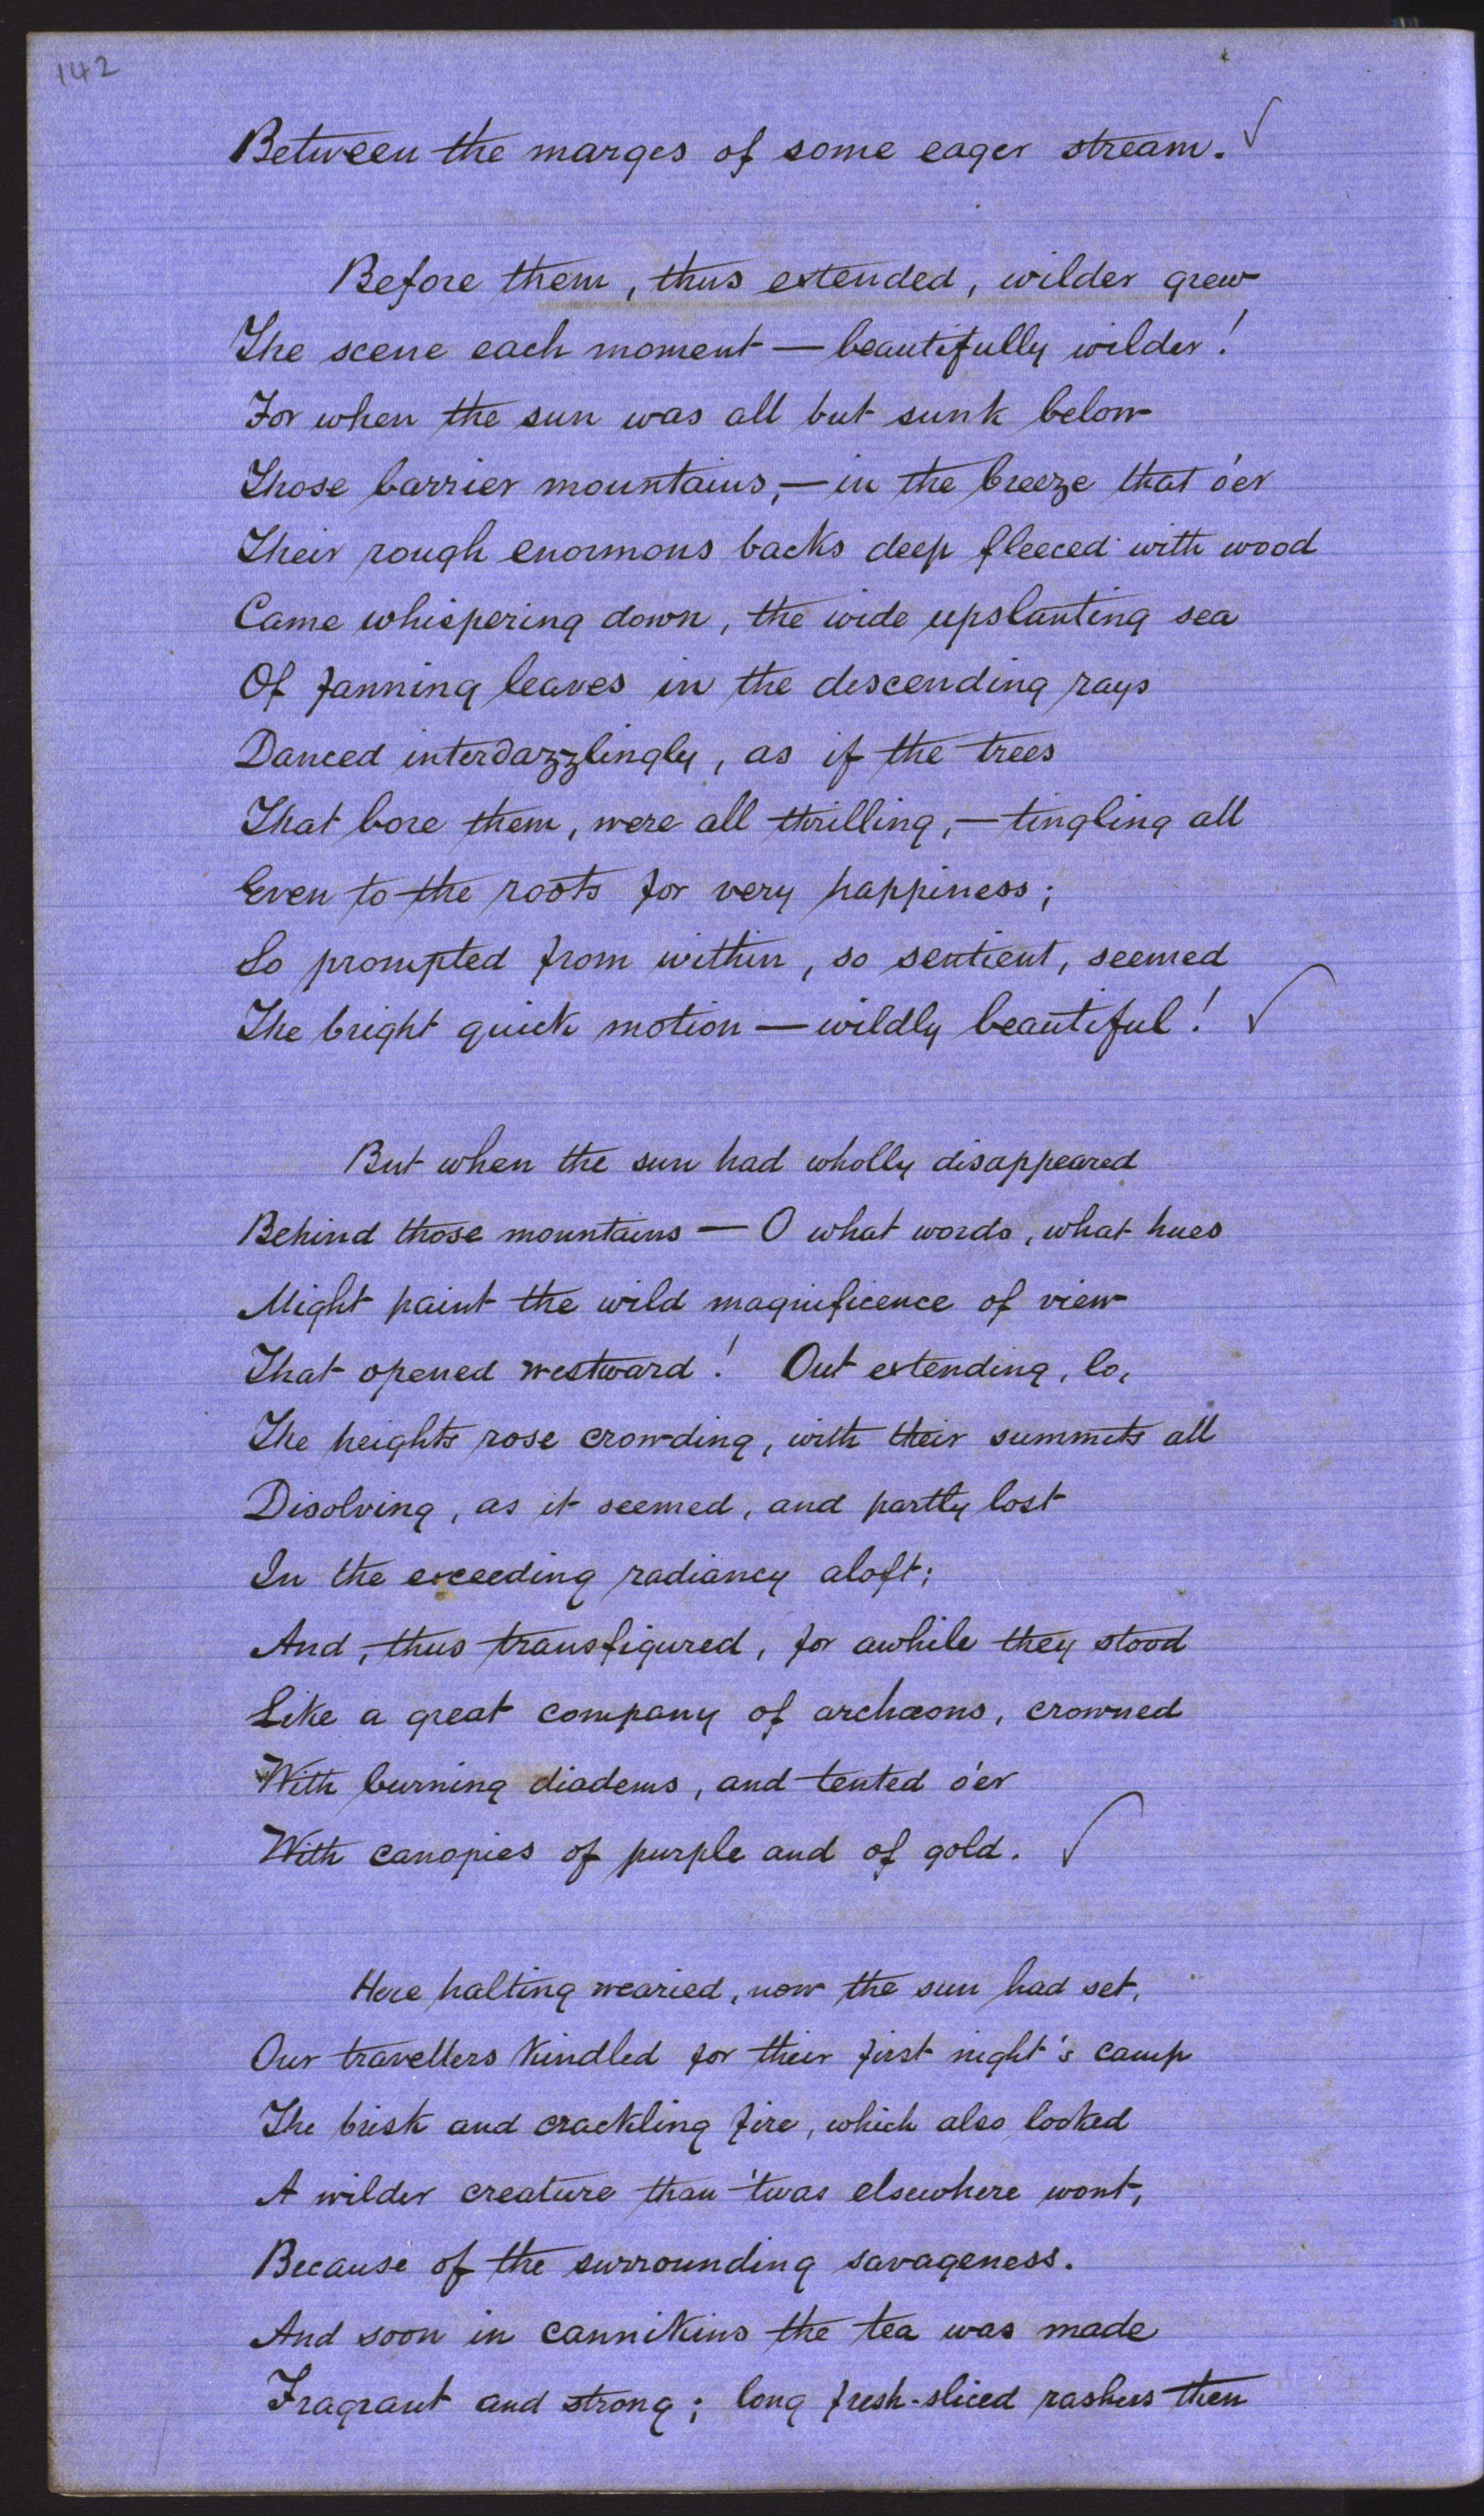 142
Between the marges of some eager stream. ✓
Before them, thus extended, wilder grew
The scene each moment — beautifully wilder!
For when the sun was all but sunk below
Those barrier mountains, — in the breeze that o'er
Their rough enormous backs deep fleeced with wood
Came whispering down, the wide upslanting sea
Of fanning leaves in the descending rays
Danced interdazzlingly, as if the trees
That bore them, were all thrilling, — tingling all
Even to the roots for very happiness;
So prompted from within, so sentient, seemed
The bright quick motion — wildly beautiful! ✓
But when the sun had wholly disappeared
Behind those mountains — O what words, what hues
Might paint the wild magnificence of view
That opened westward! Out extending, lo,
The heights rose crowding, with their summits all
Disolving, as it seemed, and partly lost
In the exceeding radiancy aloft;
And, thus transfigured, for awhile they stood
Like a great company of archæons, crowned
With burning diadems, and tented o'er
With canopies of purple and of gold. ✓
Here halting wearied, now the sun had set,
Our travellers kindled for their first night's camp
The brisk and crackling fire, which also looked
A wilder creature than 'twas elsewhere wont,
Because of the surrounding savageness.
And soon in cannikins the tea was made
Fragrant and strong; long fresh-sliced rashers then